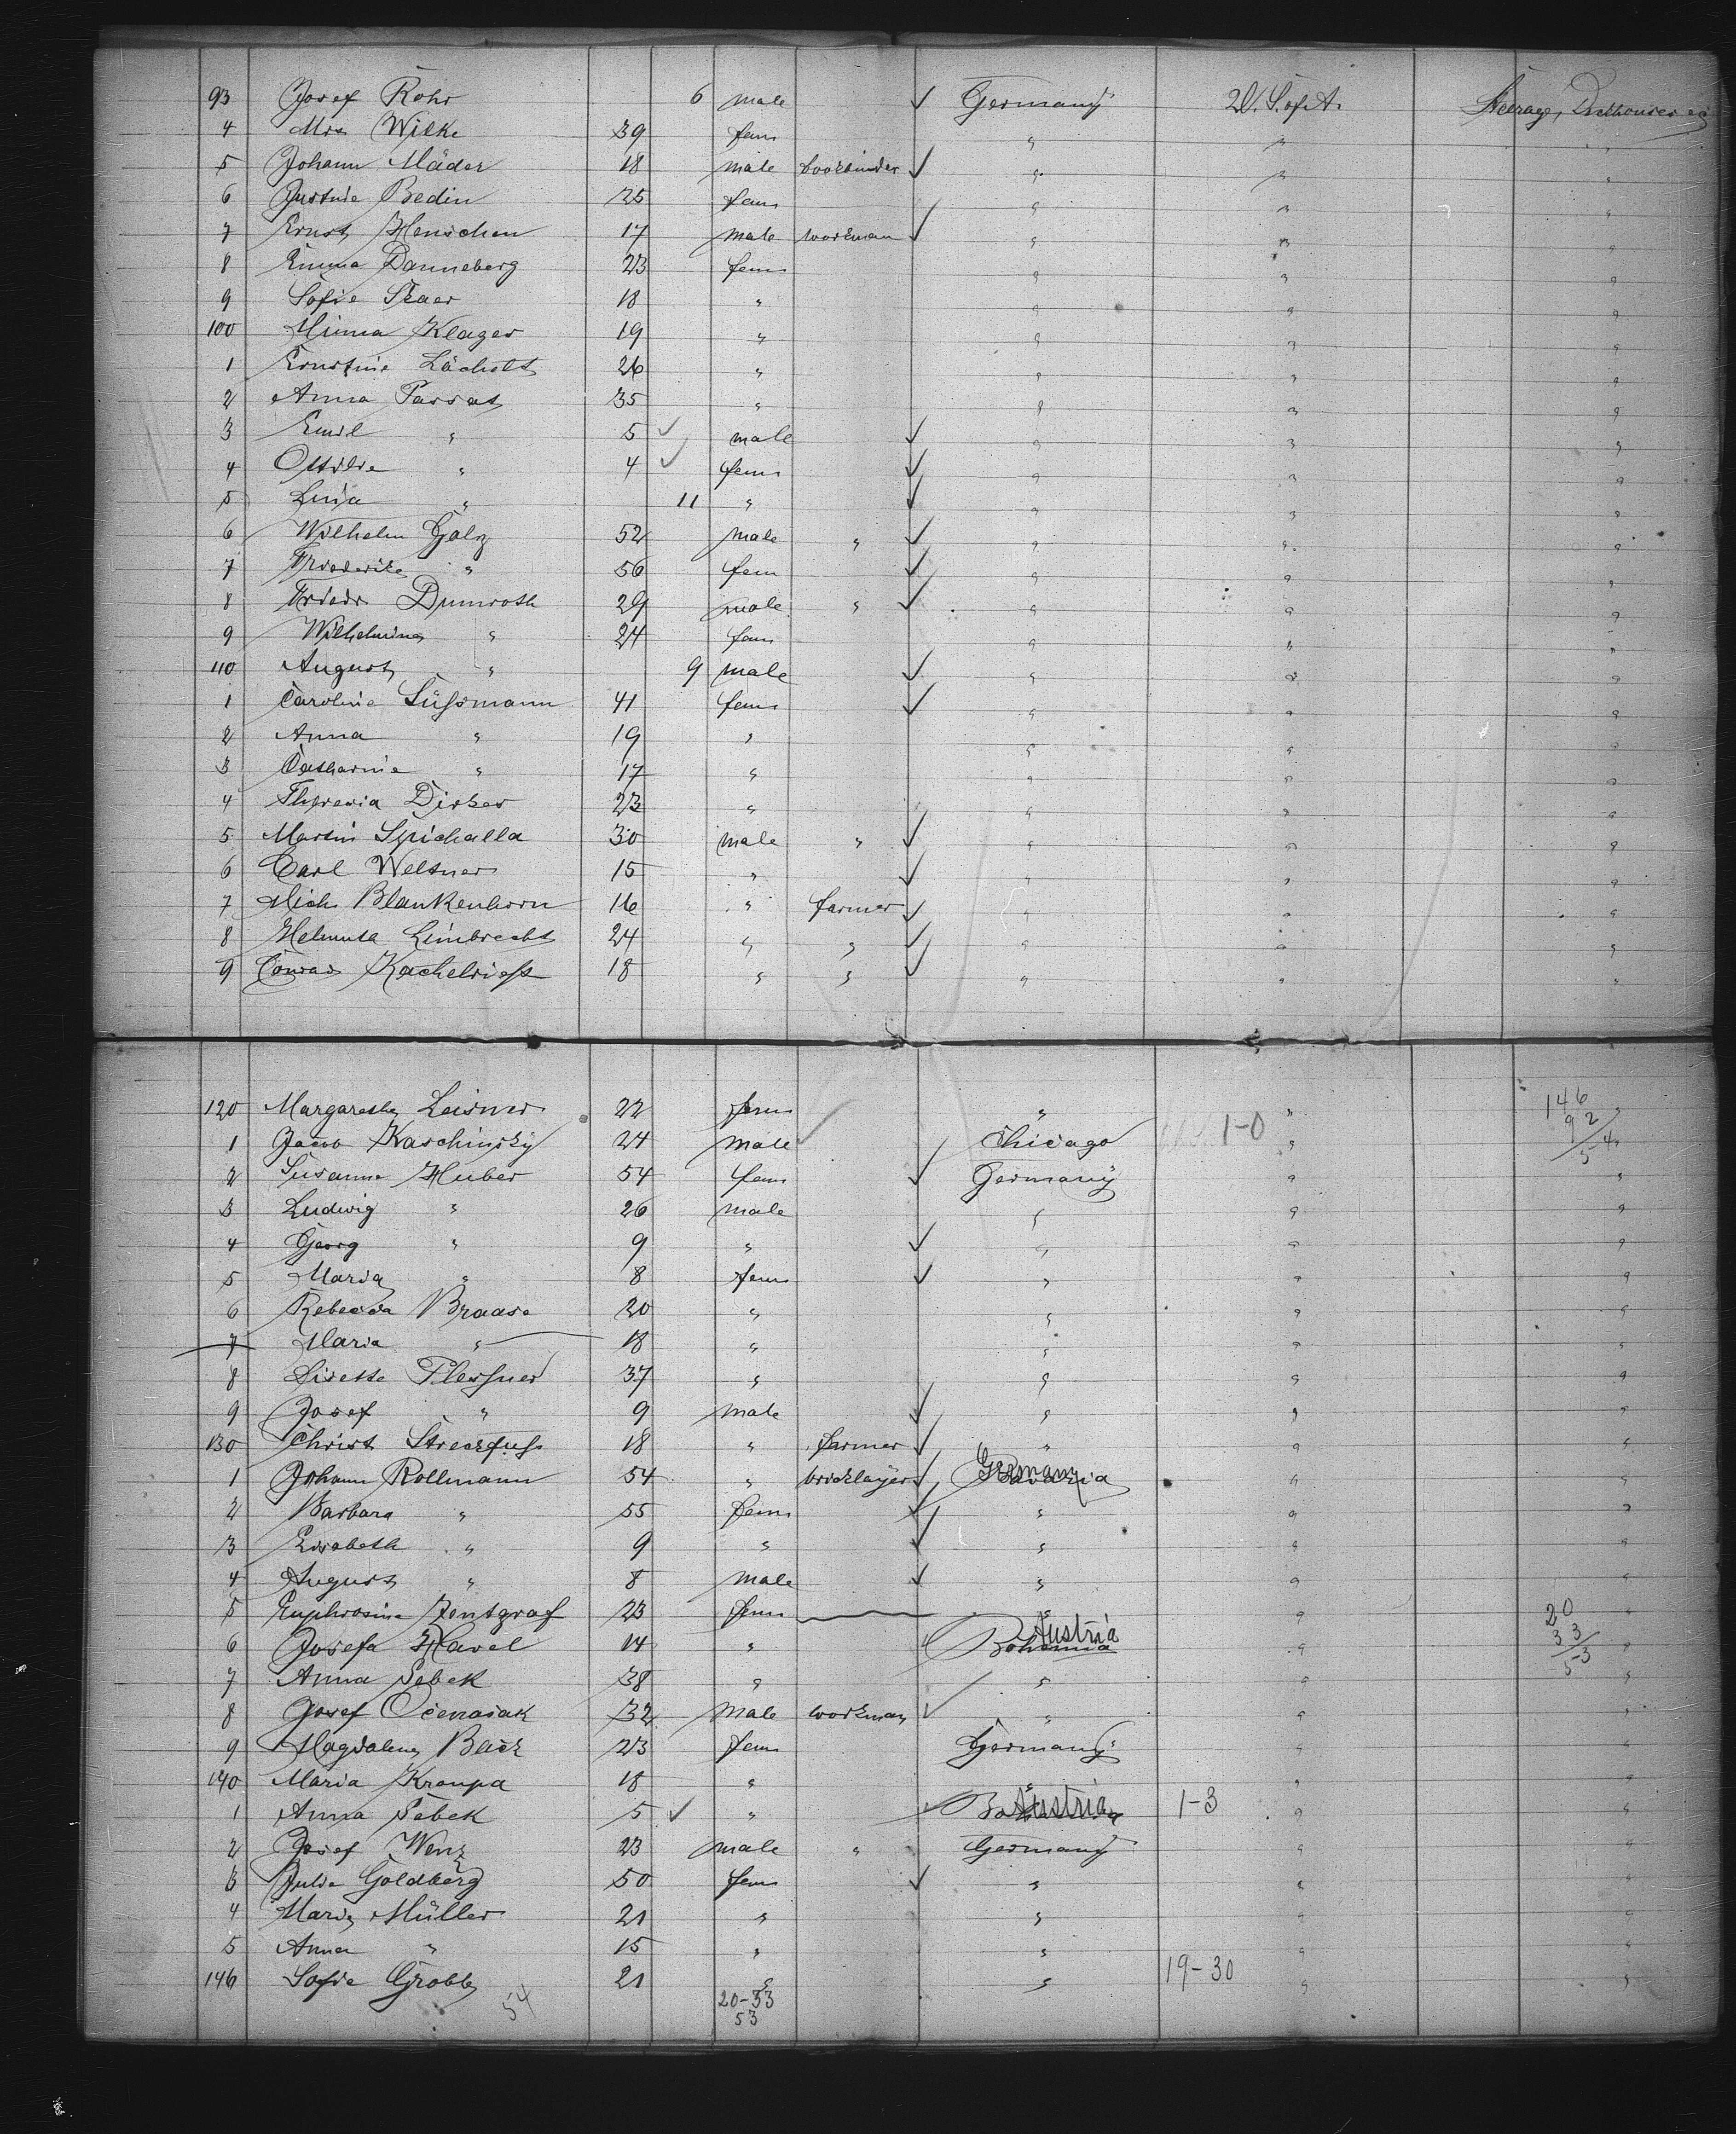 93 Josef Rohr 6 male ✓ Germany U.S. of A. Steerage,
4 Mrs Wilke 39 fem " " "
5 Johann Mäder 18 male bookbinder ✓ " " "
6 Bedin 25 fem " " "
7 Ernst Henschen 17 male workman ✓ " " "
8 Emma Danneberg 23 fem " " "
9 Sofie 18 " " " "
100 Minna Klager 19 " " " "
1 Ernstine 26 " " " "
2 Anna Passat 35 " " " "
3 Emil " 5 ✓ male ✓ " " "
4 Ottilie " 4 ✓ fem ✓ " " "
5 " 11 " ✓ " " "
6 Wilhelm Golz 52 male " ✓ " " "
7 Friederike " 56 fem ✓ " " "
8 Friedr Dumroth 29 male " ✓ " " "
9 Wilhelmine " 24 fem " " "
110 August " 9 male ✓ " " "
1 Caroline Süßmann 41 fem ✓ " " "
2 Anna " 19 " " " "
3 Catharine " 17 " " " "
4 Theresia Dirker 23 " " " "
5 Martin Spichalla 30 male " ✓ " " "
6 Carl Weltner 15 " ✓ " " "
7 Mich Blankenhorn 16 " farmer ✓ " " "
8 Limbrecht 24 " " ✓ " " "
9 Conrad Kachelrieß 18 " " ✓ " " "
120 Margarethe Leisner 22 fem " " 146 "
1 Jacob Kaschinsky 24 male ✓ Chicago 1-0 " 92
54
2 Susanna Huber 54 fem ✓ Germany " "
3 Ludwig " 26 male " " "
4 Georg " 9 " ✓ " " "
5 Maria " 8 fem ✓ " " "
6 Rebecca Braase 20 " " " "
7 Maria " 18 " " " "
8 Lisette Plessner 37 " " " "
9 Josef " 9 male ✓ " " "
130 Christ Streckfuß 18 " farmer ✓ " " "
1 Johann Rollmann 54 " bricklayer ✓ Germany Bavaria " "
2 Barbara " 55 fem ✓ " " "
3 Elisabeth " 9 " ✓ " " "
4 August " 8 male ✓ " " "
5 Euphrosine Zentgraf 23 fem " " 20 "
6 Josefa Havel 14 " Bohemia Austria " 33 "
53
7 Anna Sebek 38 " " " "
8 Josef Ocenasak 32 male workman ✓ " " "
9 Magdalena 23 fem Germany " "
140 Maria Kroupa 18 " " " "
1 Anna Sebek 5 ✓ " ✓ Austria 1-3 " "
2 Josef Wenz 23 male " Germany " "
3 Julie Goldberg 50 fem ✓ " " "
4 Maria Müller 21 " " " "
5 Anna " 15 " " " "
146 Sofie Grobb 21 " " 19-30 " "
54 20-33
53